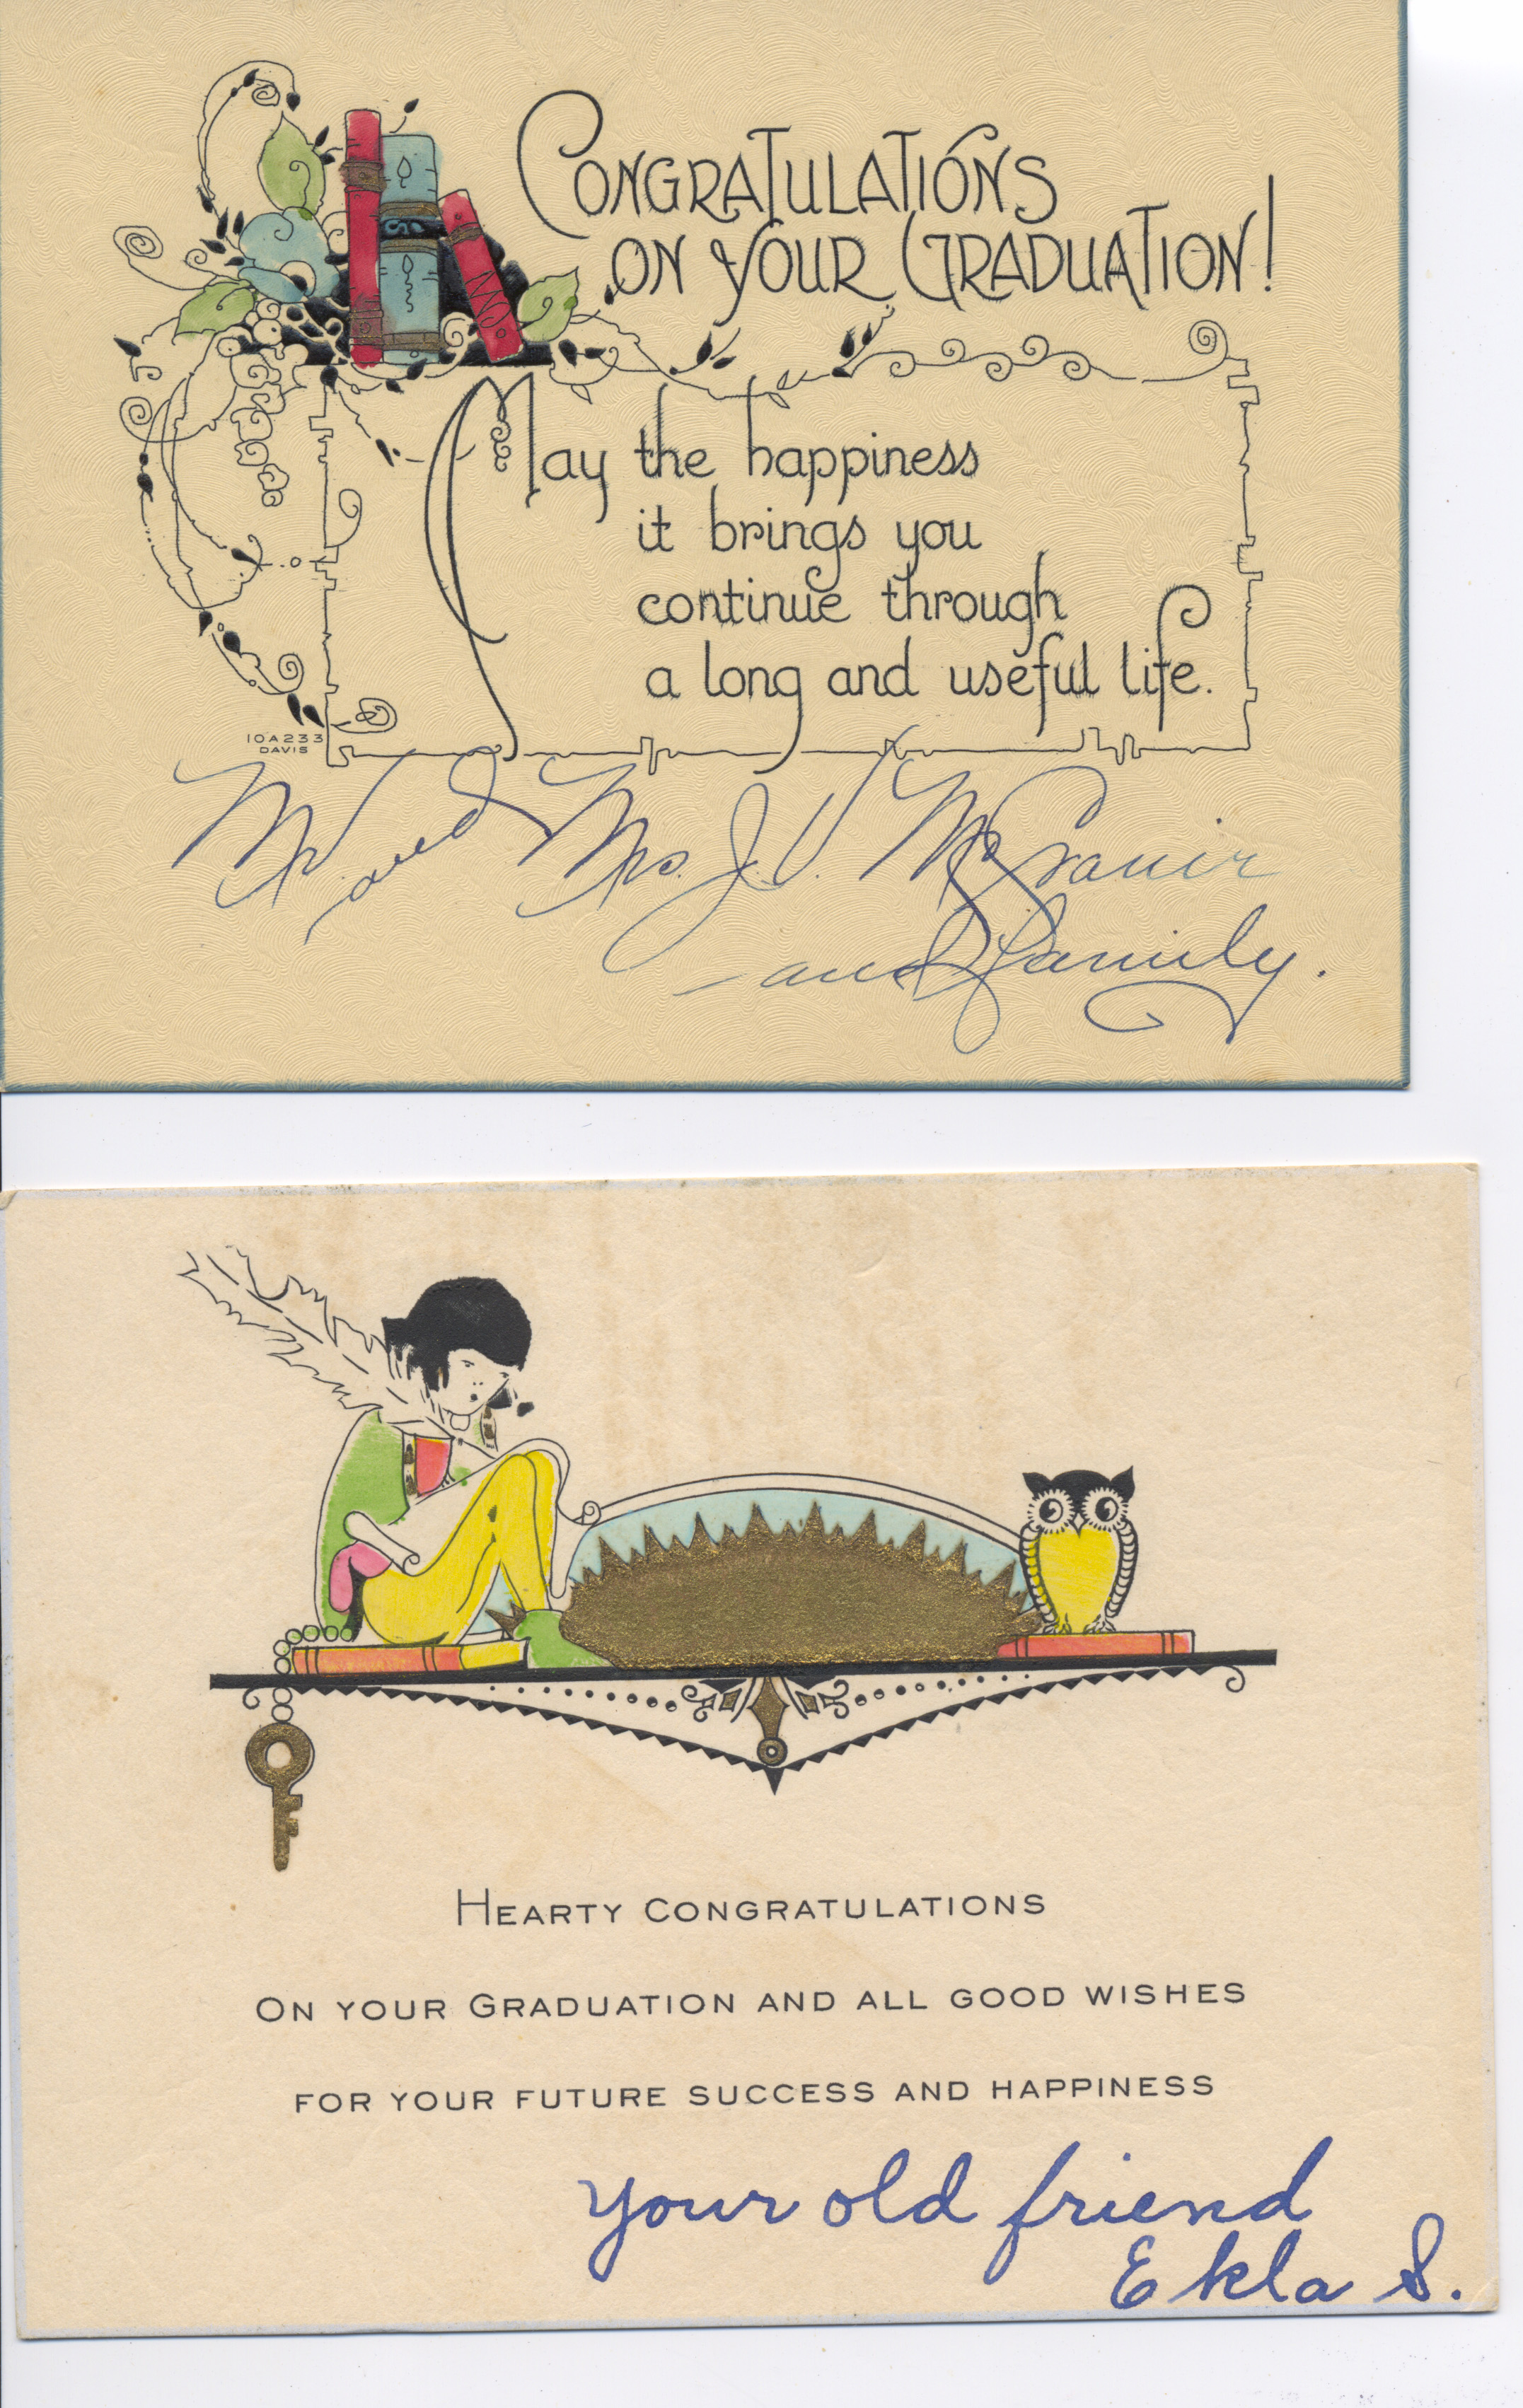 CONGRATULATIONS
ON YOUR GRADUATION!
May the happiness
it brings you
continue through
a long and useful life.
10A233
DAVIS
Mr and Mrs. J. V.
and family.
HEARTY CONGRATULATIONS
ON YOUR GRADUATION AND ALL GOOD WISHES
FOR YOUR FUTURE SUCCESS AND HAPPINESS
your old friend
Ekla S.